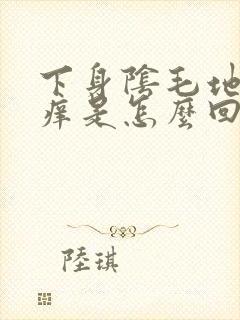 下身陰毛地
痒是怎麼回
陸琪